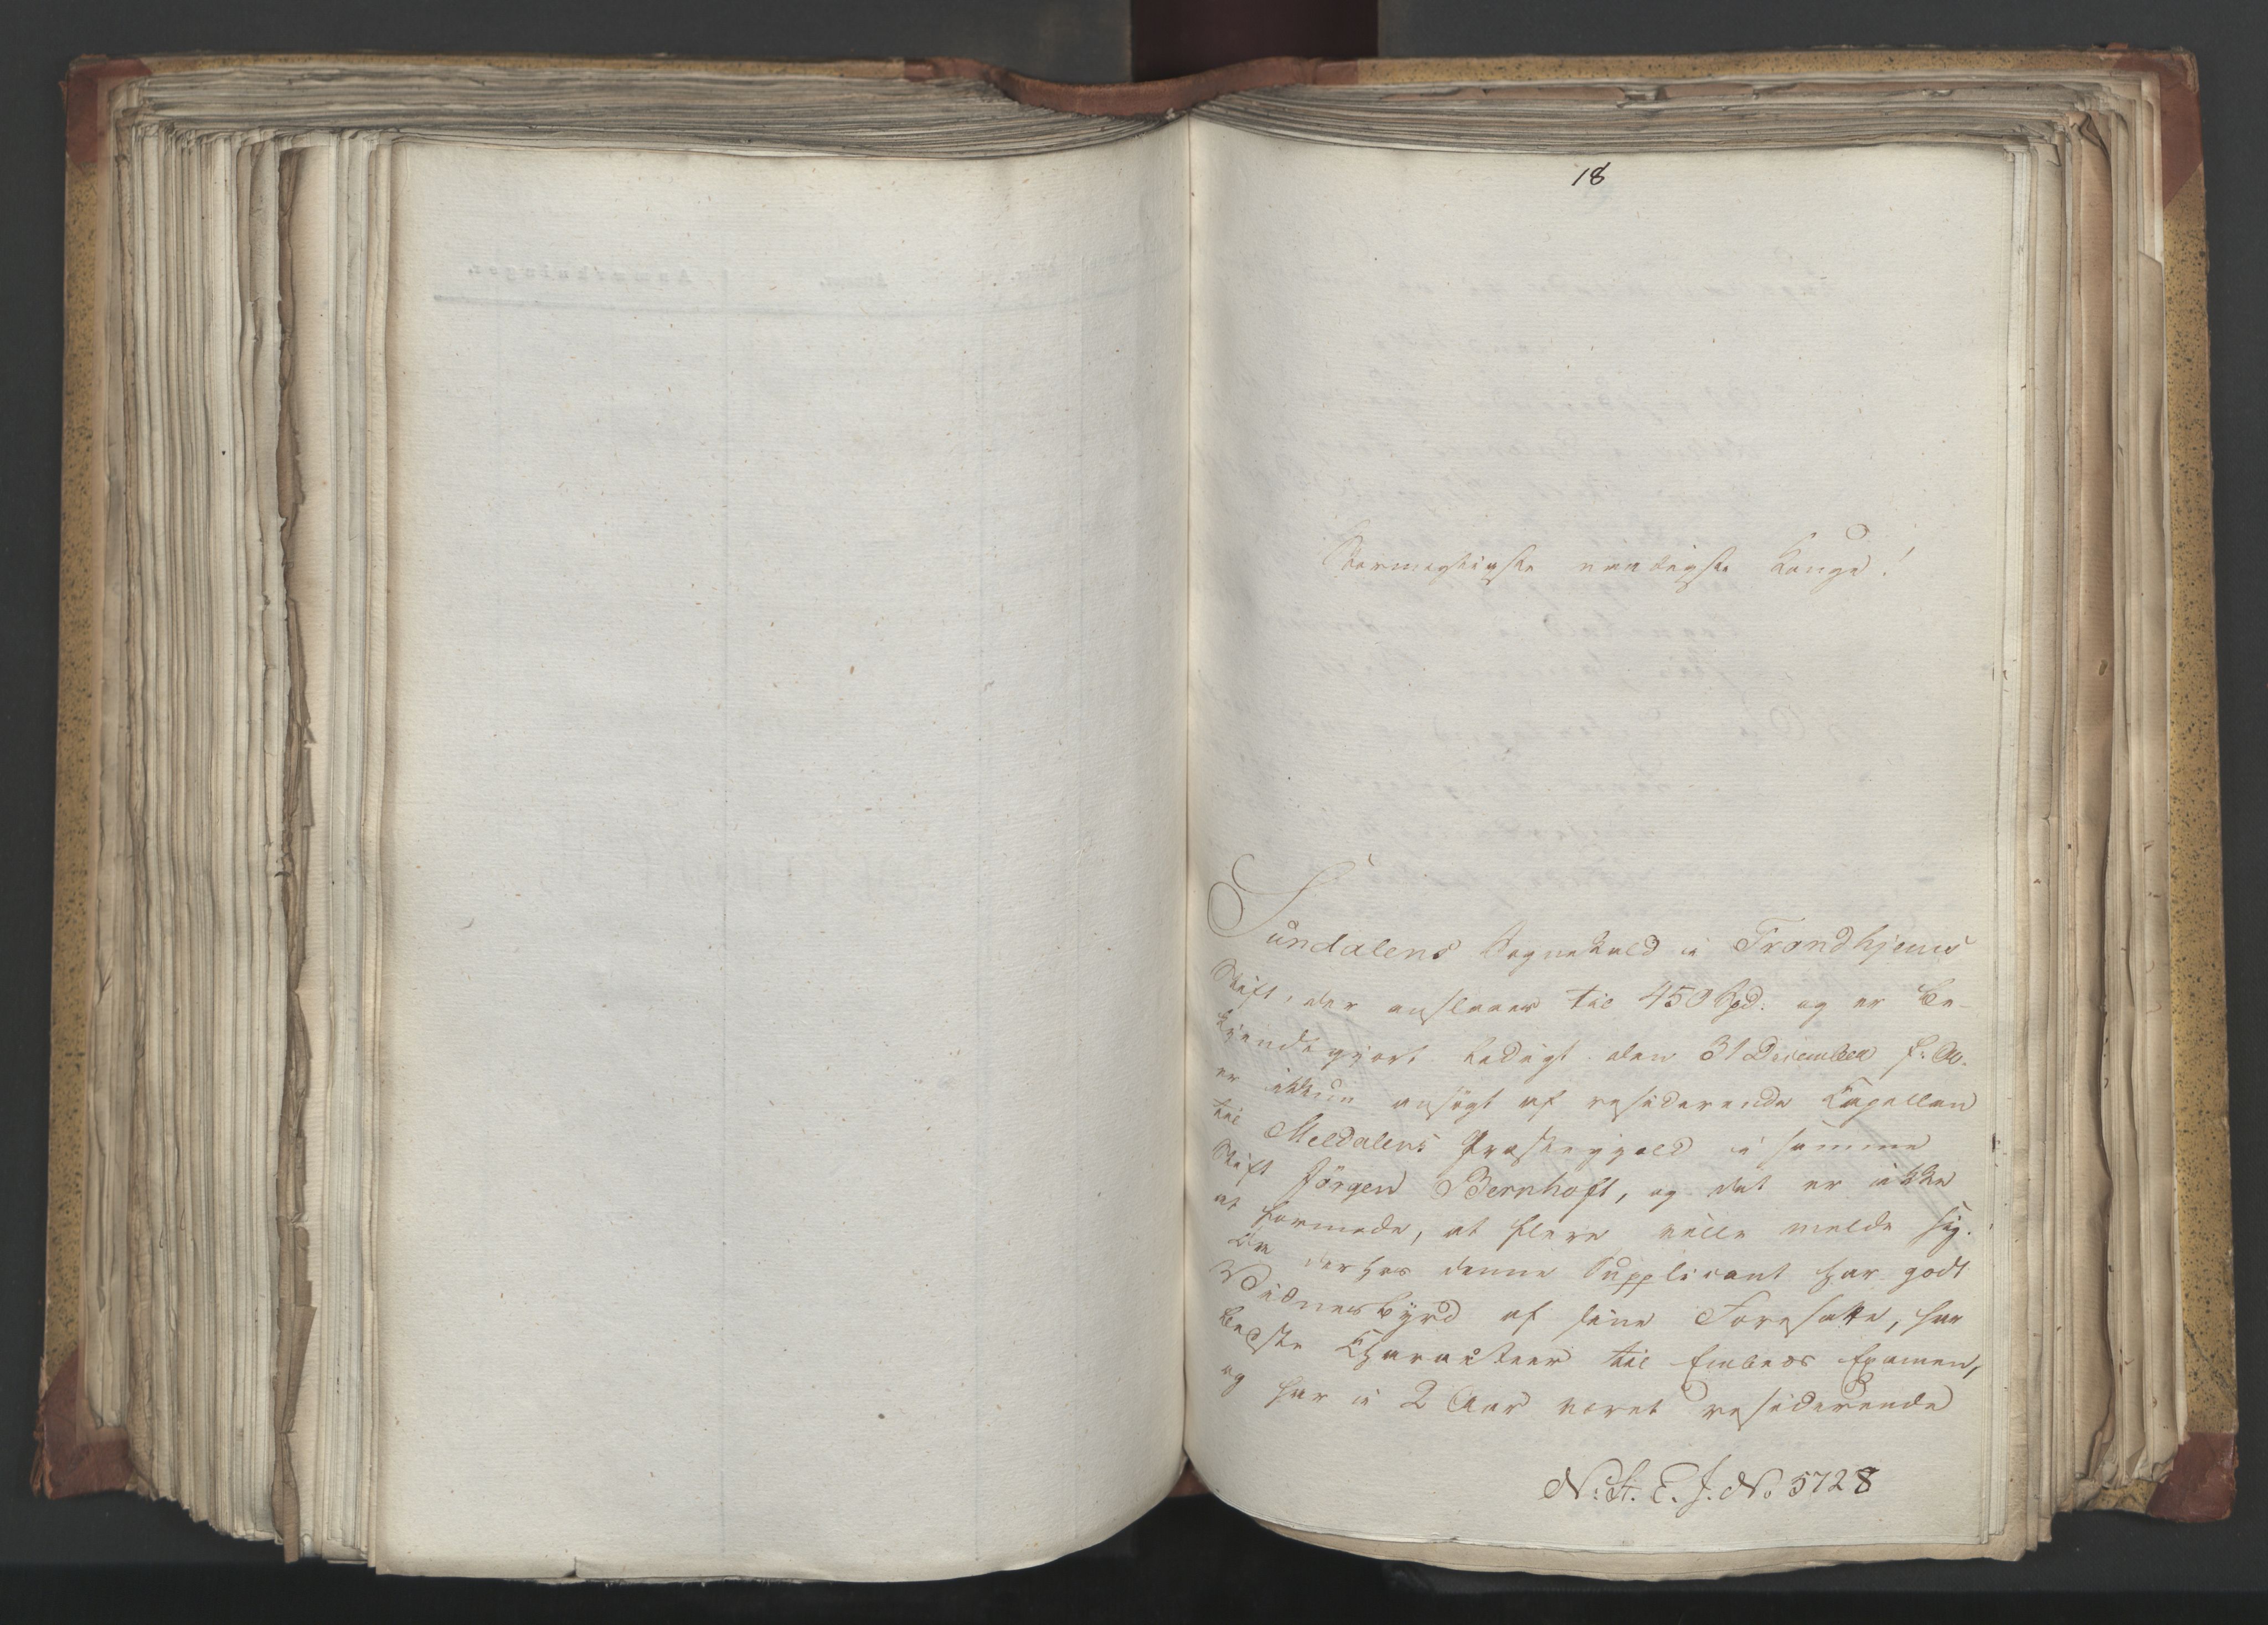 18
Stormægtigste naadigste Konge!
Sundalens Sognekald i Trondhjems
Stift, der anslaaes til 450 Spd: og er be-
kjendtgjort ledigt den 31 December f: A.
er ikkun ansøgt af residerende Capellan
til Meldalens Præstegjæld i samme
Stift Jörgen Bernhoft, og det er ikke
at formode, at flere ville melde sig.
Da derhos denne Supplicant har godt
Vidnesbyrd af sine Foresatte, har
bedste Characteer til Embeds Examen,
og har i 2 Aar været residerende
N: St. E. J. No 5728
Anmærkninger.